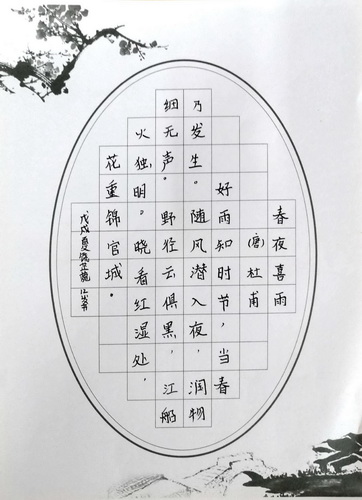 春夜喜雨
(唐)杜甫
好雨知时节，当春
乃发生。随风潜入夜，润物
细无声。野径云俱黑，江船
火独明。晓看红湿处，
花重锦官城。
戊戌夏